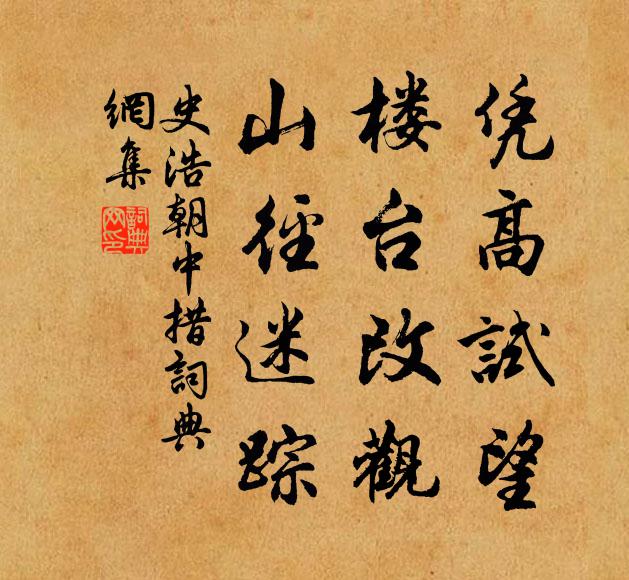 凭高試望
楼台改觀
山徑迷踪
史浩朝中措詞典
網集
詞典网印